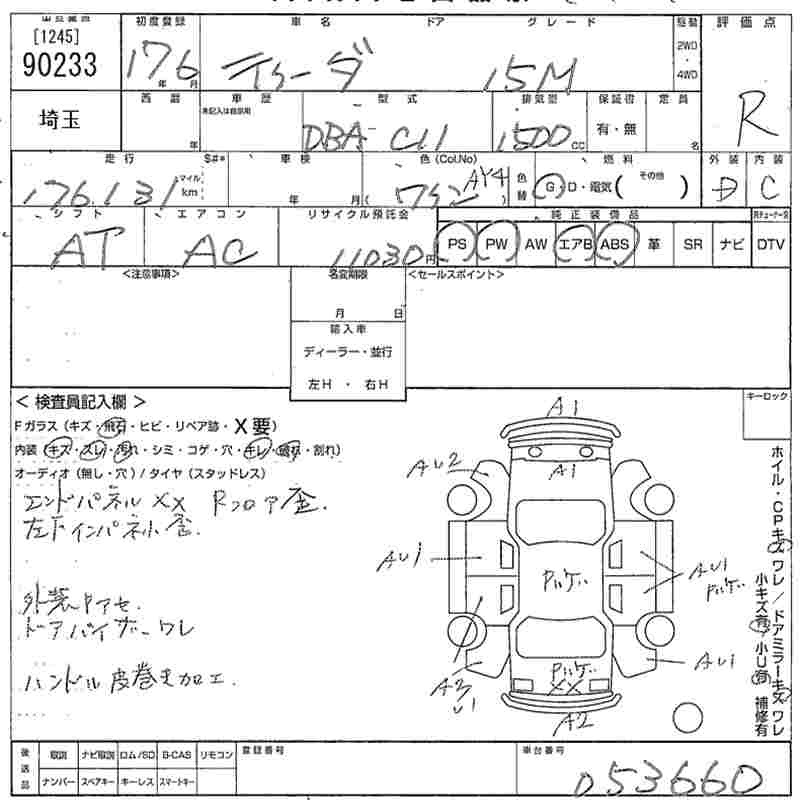 [1245]
90233
初度登録 車名 ドア グレード 駆動 評価点
17年6月 ティーダ 15M 2WD・4WD R
埼玉
西暦 車歴 型式 排気量 保証書 定員
年 未記入は自家用 DBA-C11 1500cc 有・無 名
走行 S#* 車検 色(Col.No) 燃料 外装 内装
176,131 マイル km 年 月 ワイン AY4 色替 G・D・電気( その他 ) D C
シフト エアコン リサイクル預託金 純正装備品
AT AC 11030円 PS PW AW エアB ABS 革 SR ナビ DTV
<注意事項> 名変期限 <セールスポイント>
月 日
輸入車
ディーラー・並行
左H・右H
<検査員記入欄> キーロック
Fガラス(キズ・飛石・ヒビ・リペア跡・X要)
内装(キズ・スレ・汚れ・シミ・コゲ・穴・キレ・破れ・割れ)
オーディオ(無し・穴)/タイヤ(スタッドレス)
エンドパネルXX Rフロア歪.
左下インパネ小歪.
外装下アセ.
ドアバイザーワレ
ハンドル皮巻き加工.
A1
A1
AU2
AU1
AU1
AU1
A2
U1
XX
A2
ホイル・CPキズワレ/ドアミラーキズワレ
小キズ有 小U有 補修有
後送品 取説 ナビ取説 ロム/SD B-CAS リモコン 登録番号 車台番号
ナンバー スペアキー キーレス スマートキー 053660